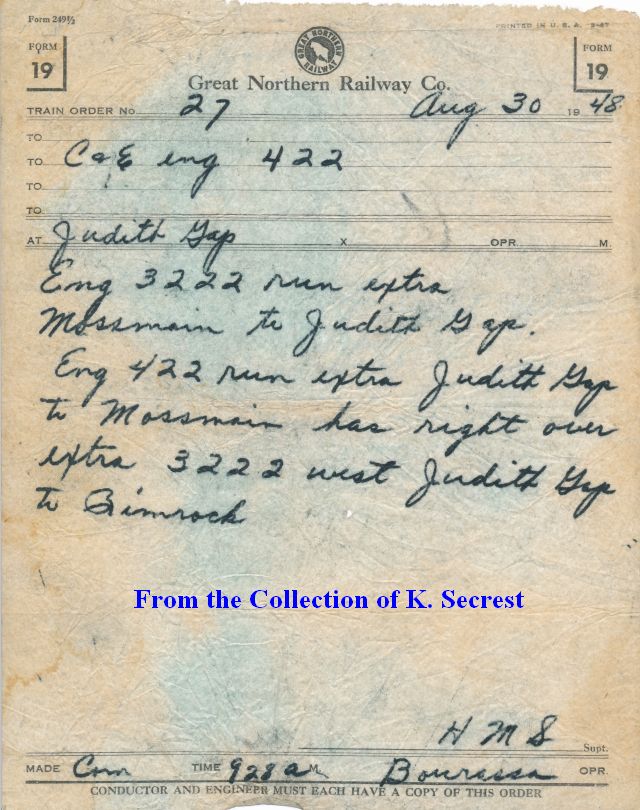 Form 249½
PRINTED IN U. S. A. 3-47
FORM 19
GREAT NORTHERN RAILWAY
FORM 19
Great Northern Railway Co.
TRAIN ORDER No. 27 Aug 30 1948
TO
TO C&E eng 422
TO
TO
AT Judith Gap X OPR. M.
Eng 3222 run extra
Mossmain to Judith Gap.
Eng 422 run extra Judith Gap
to Mossmain has right over
extra 3222 west Judith Gap
to Rimrock
From the Collection of K. Secrest
H M S Supt.
MADE Com TIME 928 a M. Bourassa OPR.
CONDUCTOR AND ENGINEER MUST EACH HAVE A COPY OF THIS ORDER